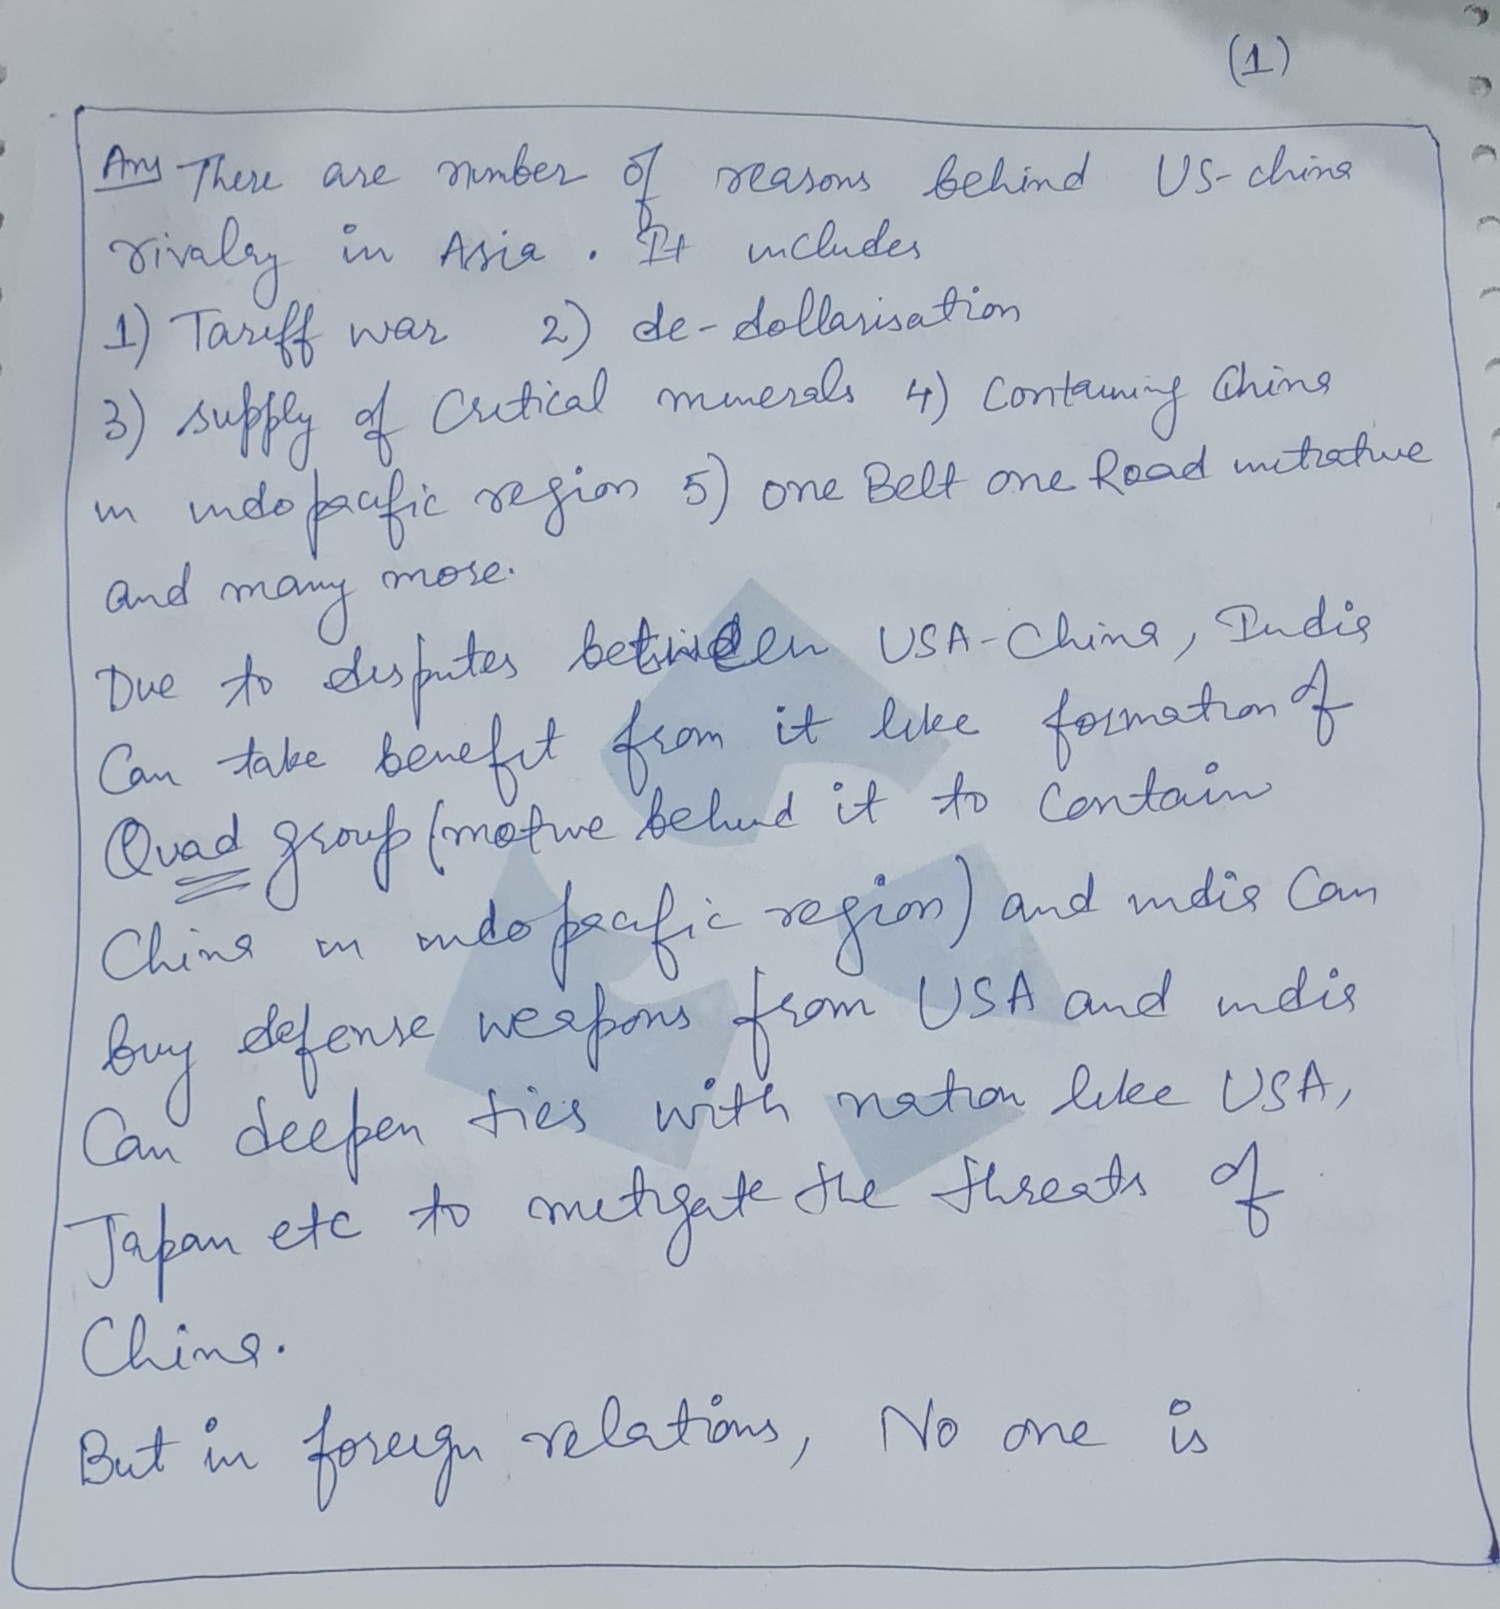 (1)
Ans There are number of reasons behind US-china
rivalry in Asia. It includes
1) Tariff war 2) de-dollarisation
3) supply of Critical minerals 4) Containing China
in indo pacific region 5) one Belt one Road initiative
and many more.
Due to disputes between USA-China, India
Can take benefit from it like formation of
Quad group (motive behind it to contain
China in indo pacific region) and india Can
buy defense weapons from USA and india
Can deepen ties with nation like USA,
Japan etc to mitigate the threats of
China.
But in foreign relations, No one is